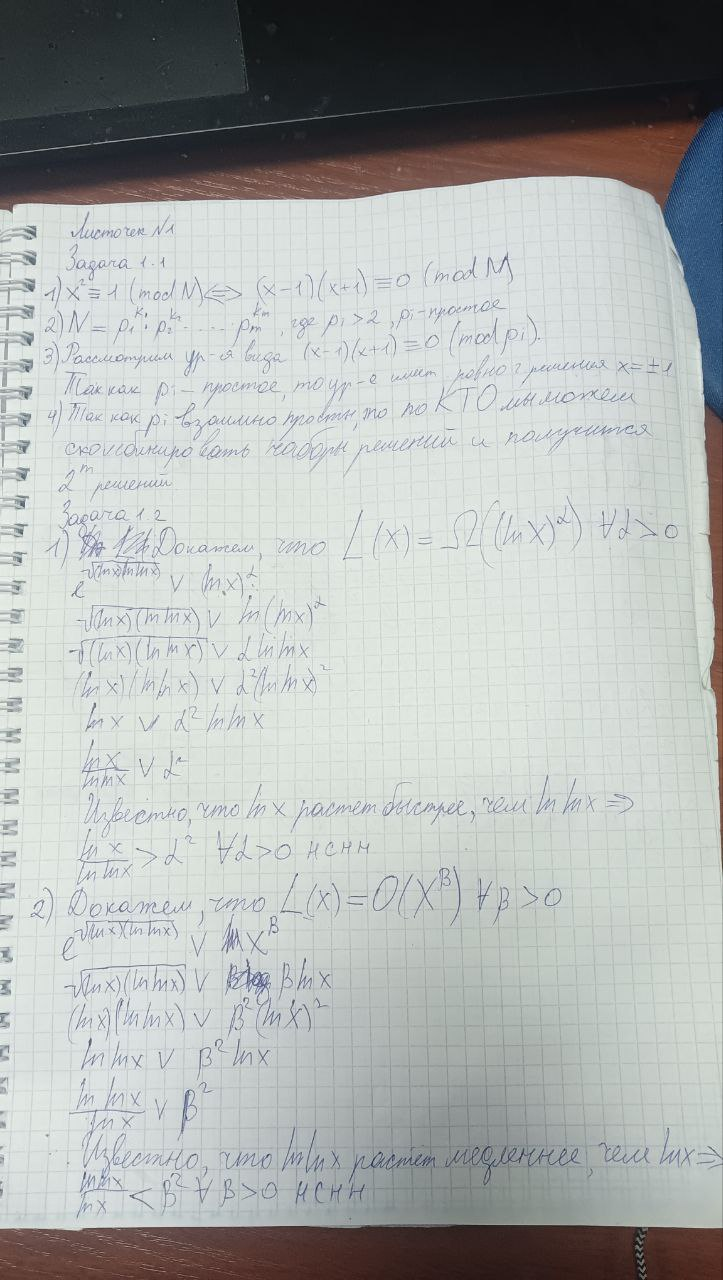 Листочек N1
Задача 1.1
1) x² ≡ 1 (mod N) ⟺ (x-1)(x+1) ≡ 0 (mod N)
2) N = p₁^k₁ · p₂^k₂ · .... · pₘ^kₘ, где pᵢ > 2, pᵢ - простое
3) Рассмотрим ур-я вида (x-1)(x+1) ≡ 0 (mod pᵢ).
Так как pᵢ - простое, то ур-е имеет ровно 2 решения x = ±1
4) Так как pᵢ взаимно просты, то по КТО мы можем
скомбинировать наборы решений и получится
2^m решений
Задача 1.2
1) Докажем, что L(x) = Ω((ln x)^α) ∀α > 0
e^√((ln x)(ln ln x)) ∨ (ln x)^α
√((ln x)(ln ln x)) ∨ ln(ln x)^α
√((ln x)(ln ln x)) ∨ α ln ln x
(ln x)(ln ln x) ∨ α²(ln ln x)²
ln x ∨ α² ln ln x
ln x / ln ln x ∨ α²
Известно, что ln x растет быстрее, чем ln ln x ⇒
ln x / ln ln x > α² ∀α > 0 нснн
2) Докажем, что L(x) = O(x^β) ∀β > 0
e^√((ln x)(ln ln x)) ∨ x^β
√((ln x)(ln ln x)) ∨ β ln x
(ln x)(ln ln x) ∨ β²(ln x)²
ln ln x ∨ β² ln x
ln ln x / ln x ∨ β²
Известно, что ln ln x растет медленнее, чем ln x ⇒
ln ln x / ln x < β² ∀β > 0 нснн